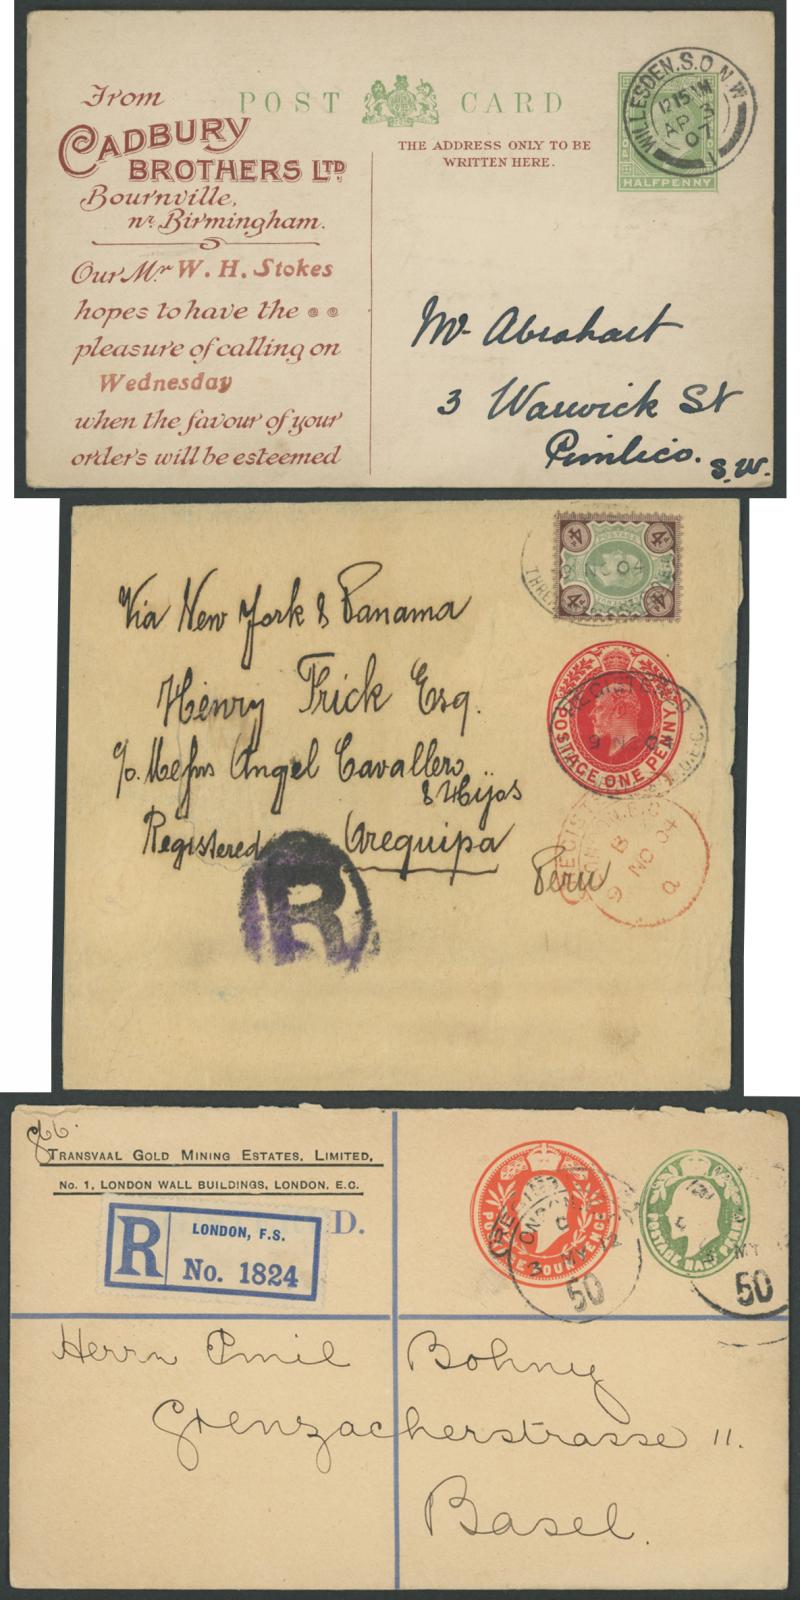 From
CADBURY
BROTHERS LTD
Bournville,
nr. Birmingham.
Our Mr W. H. Stokes
hopes to have the
pleasure of calling on
Wednesday
when the favour of your
orders will be esteemed
POST CARD
THE ADDRESS ONLY TO BE
WRITTEN HERE.
HALFPENNY
WILLESDEN.S.O.N.W
12 15 PM
AP 3
07
1
Mr Abrahart
3 Warwick St
Pimlico.
S.W.
4d 4d
POSTAGE
4d 4d
9 NO 04
Via New York & Panama
Henry Frick Esq.
c/o. Messrs Angel Cavallero
& Hijos
Registered Arequipa
Peru
R
POSTAGE ONE PENNY
REGISTERED
9 NO 04
REGISTERED
B
9 NO 04
a
TRANSVAAL GOLD MINING ESTATES, LIMITED,
No. 1, LONDON WALL BUILDINGS, LONDON, E.C.
D.
R
LONDON, F.S.
No. 1824
3 MY 12
50
MY
50
Herrn Emil Bohny
Grenzacherstrasse 11.
Basel.